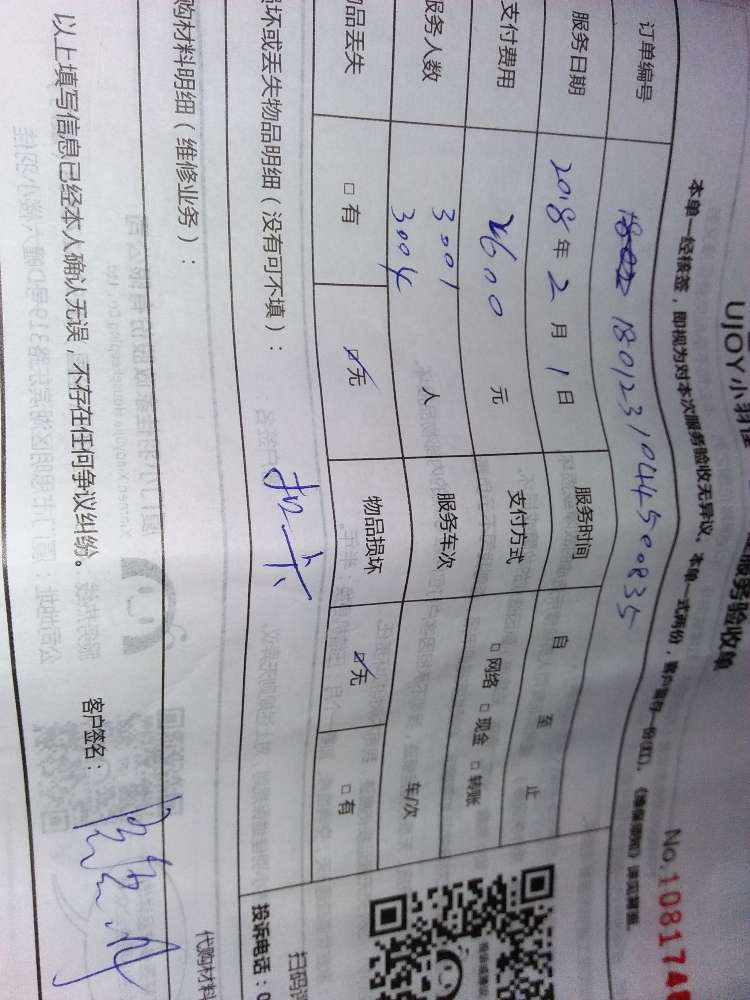 UJOY小羽佳
服务验收单
No.108174
本单一经核签，即视为对本次服务验收无异议、本单一式两份，客户留存一份(红)。
订单编号 1801231044500835
服务日期 2018年2月1日 服务时间 自 至 止
支付费用 2600 元 支付方式 □网络 □现金 □转账
服务人数 3001 3004 人 服务车次 车/次
物品丢失 □有 ☑无 物品损坏 ☑无 □有
坏或丢失物品明细（没有可不填）：
扫码
投诉电话：0
购材料明细（维修业务）：
代购材料
以上填写信息已经本人确认无误，不存在任何争议纠纷。
客户签名：